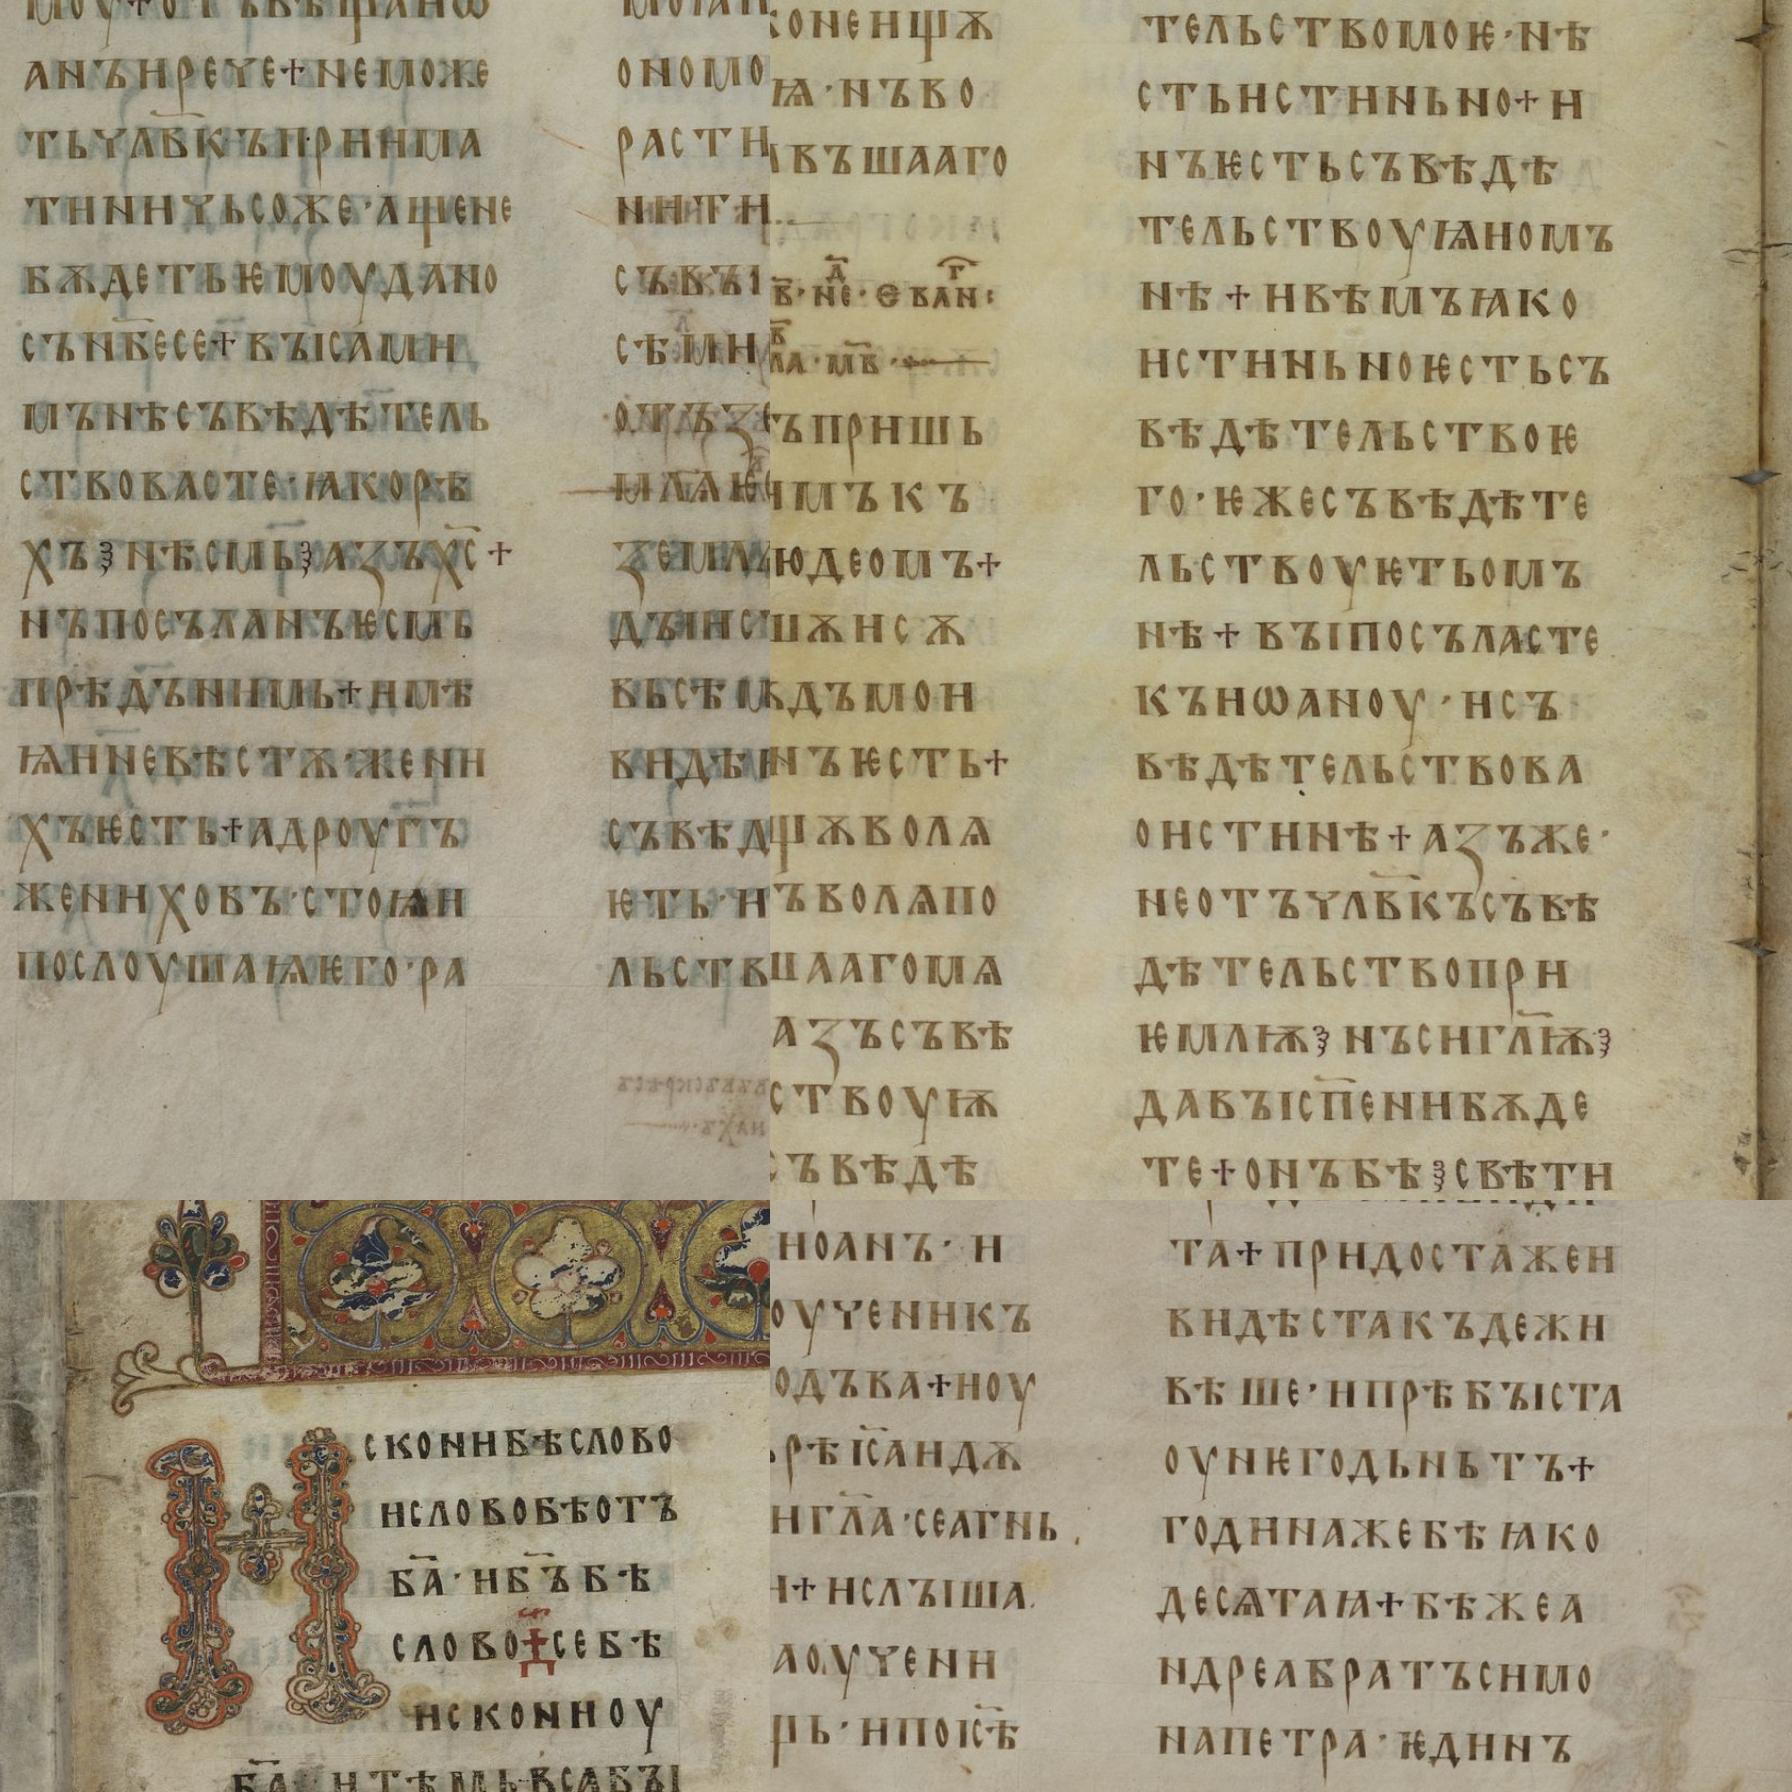 моу·отъвѣщаиѡ
анъирече+неможе
тьчл҃вкъприима
тиничьсоже·ащене
бѫдетьѥмоудано
сън҃бесе+вꙑсами
мънѣсъвѣдѣтель
ствовасте·ꙗкорѣ
хъꙁнѣсмьꙁазъх҃с+
нъпосъланъѥсмь
прѣдънимь+имѣ
ꙗиневѣстѫ·жени
хъѥсть+адроугъ
жениховъ·стоꙗи
послоушаꙗѥго·ра
ономо
расти
нити
съвꙑ
сѣми
отъзе
млѧѥ
земл
дꙑис
вьсѣм
видѣ
съвѣд
ѥть·и
льств
конецѩ
ꙗ·нъво
въшааго
в҃·не·ѳ҃влн:
ла·мв҃·
ъпришь
имъкъ
юдеомъ+
шѫисѫ
дъмои
нъѥсть+
щѫволѧ
ъволѧпо
шаагомѧ
азъсъвѣ
ствоуѭ
съвѣдѣ
тельствомоѥ·нѣ
стьистиньно+и
нъѥстьсъвѣдѣ
тельствоуꙗиомъ
нѣ+ивѣмъꙗко
истиньноѥстьсъ
вѣдѣтельствоѥ
го·ѥжесъвѣдѣте
льствоуѥтьомъ
нѣ+вꙑпосъласте
къиѡаноу·исъ
вѣдѣтельствова
оистинѣ+азъже·
неотъчл҃вкъсъвѣ
дѣтельствопри
ѥмлѭꙁнъсигл҃ѭꙁ
давꙑсп҃ениибѫде
те+онъбѣꙁсвѣти
исконибѣслово
ислововѣотъ
б҃а·иб҃ъбѣ
слово+себѣ
исконноу
б҃а
иоанъ·и
оученикъ
одъва+иоу
рѣіс҃аидѫ
игл҃а·сеагнь
и+ислꙑша
аоучени
рь·ипоіс҃ѣ
та+придостажеи
видѣстакъдежи
вѣше·ипрѣбꙑста
оунѥгодьньтъ+
годинажебѣꙗко
десѧтаꙗ+бѣжеа
ндреабратъсимо
напетра·ѥдинъ